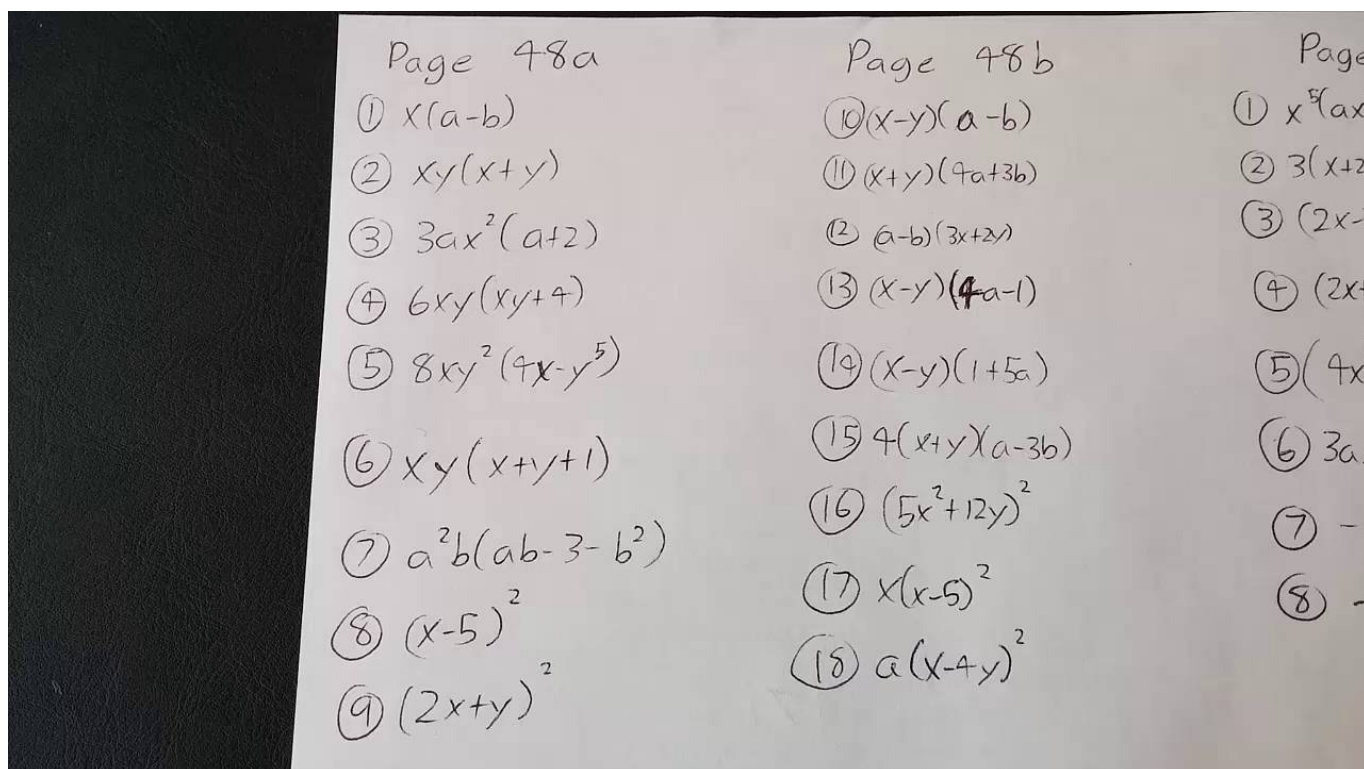 Page 48a
① x(a-b)
② xy(x+y)
③ 3ax²(a+2)
④ 6xy(xy+4)
⑤ 8xy²(4x-y⁵)
⑥ xy(x+y+1)
⑦ a²b(ab-3-b²)
⑧ (x-5)²
⑨ (2x+y)²
Page 48b
⑩ (x-y)(a-b)
⑪ (x+y)(4a+3b)
⑫ (a-b)(3x+2y)
⑬ (x-y)(4a-1)
⑭ (x-y)(1+5a)
⑮ 4(x+y)(a-3b)
⑯ (5x²+12y)²
⑰ x(x-5)²
⑱ a(x-4y)²
Page
① x⁵(ax
② 3(x+2
③ (2x-
④ (2x+
⑤ (4x
⑥ 3a
⑦ -
⑧ -